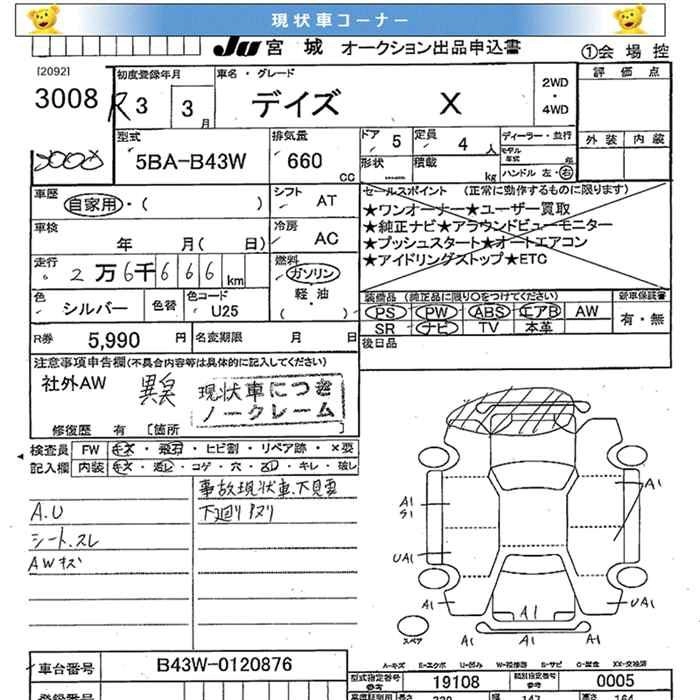 現状車コーナー
JU 宮 城 オークション出品申込書 ①会 場 控
[2092] 初度登録年月 車名・グレード 2WD・4WD 評 価 点
3008 R3 3月 デイズ X
外 装 内 装
型式 排気量 ドア 5 定員 4人 ディーラー・並行
5BA-B43W 660 cc 形状 積載 kg モデル年式 年
ハンドル 左・右
車歴 自家用・( ) シフト AT セールスポイント (正常に動作するものに限ります)
★ワンオーナー★ユーザー買取
車検 年 月( 日) 冷房 AC ★純正ナビ★アラウンドビューモニター
★プッシュスタート★オートエアコン
走行 2万6千666km 燃料 ガソリン ★アイドリングストップ★ETC
軽・油
( )
色 シルバー 色替 色コード U25 装備品 (純正品に限り○をつけてください) 新車保証書
PS PW ABS エアB AW 有・無
R券 5,990 円 名変期限 月 日 SR ナビ TV 本革
後日品
注意事項申告欄(不具合内容等は具体的に記入してください)
社外AW 異臭 現状車につき
ノークレーム
修復歴 有 [箇所
検査員 FW キズ・飛石・ヒビ割・リペア跡・×要
記入欄 内装 キズ・汚レ・コゲ・穴・スレ・キレ・破レ
事故現状車.下見要
A.U 下廻リヌリ
シート.スレ
AWキズ
A1
S1
A1
UA1
A1 A1 UA1
スペア A1 A1
A-キズ E-エクボ U-凹み W-補修跡 S-サビ C-腐食 XX-交換済
車台番号 B43W-0120876 型式指定番号 参考 19108 類別指定番号 参考 0005
登録番号 長さ 339 幅 147 高さ 164